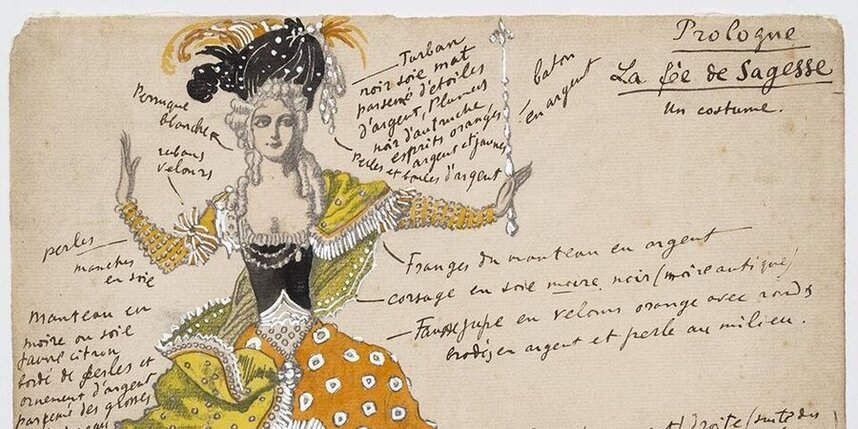 Prologue
La fée de Sagesse
un costume.
Turban
noir soie mat
parsemé d'étoiles
d'argent, Plumes
noir d'autruche
esprits oranges
argent et jaunes
Perles et boules d'argent
baton
en argent
Perruque
blanche
rubans
velours
perles
manches
en soie
Franges du manteau en argent
corsage en soie moire noir (moire antique)
Fausse jupe en velours orange avec ronds
brodés en argent et perle au milieu.
Manteau en
moire ou soie
jaune citron
bordé de perles et
ornement d'argent
parsemé des grosses
droite (suite des